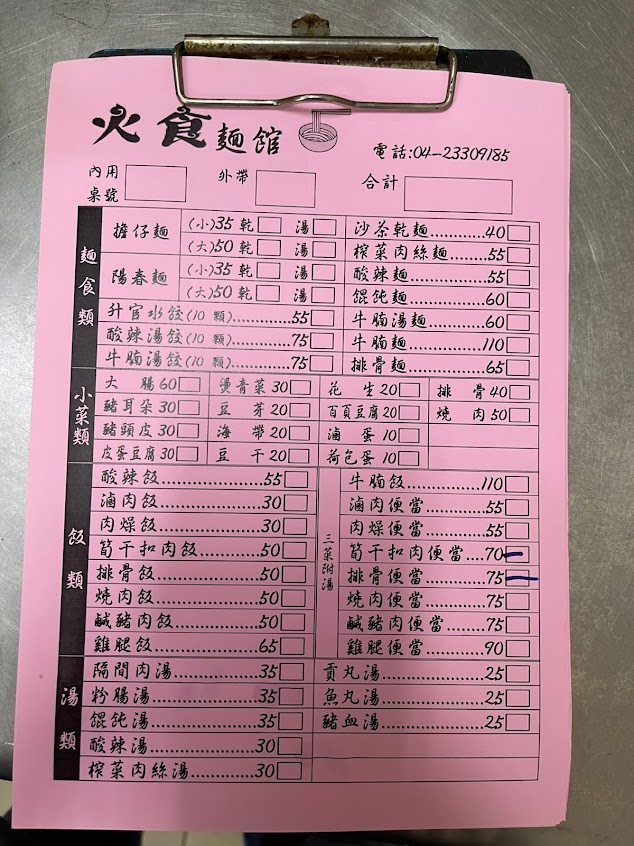 火食麵館
電話:04-23309185
內用
桌號
外帶
合計
麵食類
擔仔麵 (小)35 乾 湯
(大)50 乾 湯
陽春麵 (小)35 乾 湯
(大)50 乾 湯
升官水餃(10 顆)...............55
酸辣湯餃(10 顆)...............75
牛腩湯餃(10 顆)...............75
沙茶乾麵............40
榨菜肉絲麵........55
酸辣麵................55
餛飩麵................60
牛腩湯麵............60
牛腩麵................110
排骨麵................65
小菜類
大腸60 燙青菜30 花生20 排骨40
豬耳朵30 豆芽20 百頁豆腐20 燒肉50
豬頭皮30 海帶20 滷蛋10
皮蛋豆腐30 豆干20 荷包蛋10
飯類
酸辣飯......................55
滷肉飯......................30
肉燥飯......................30
筍干扣肉飯..............50
排骨飯......................50
燒肉飯......................50
鹹豬肉飯..................50
雞腿飯......................65
三菜附湯
牛腩飯................110
滷肉便當............55
肉燥便當............55
筍干扣肉便當...70
排骨便當............75
燒肉便當............75
鹹豬肉便當........75
雞腿便當............90
湯類
隔間肉湯..................35
粉腸湯......................35
餛飩湯......................35
酸辣湯......................30
榨菜肉絲湯..............30
貢丸湯......................25
魚丸湯......................25
豬血湯......................25